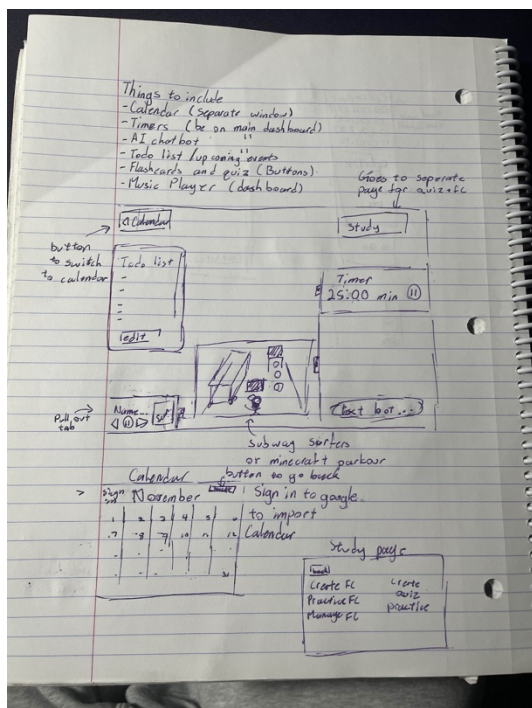 Things to include
- Calendar (separate window)
- Timers (be on main dashboard)
- AI chatbot "
- Todo list / upcoming events "
- Flashcards and quiz (Buttons)
- Music Player (dashboard)
Goes to seperate
page for quiz+FC
◁ Calendar
Study
button
to switch
to calendar
Todo list
-
-
-
-
edit
Timer
25:00 min
Pull out
tab
Name...
bot...
Subway surfers
or minecraft parkour
Calendar
button to go back
sign
in
November
Sign in to google
to import
Calendar
1 2 3 4 5 6
7 8 9 10 11 12
31
Study page
back
Create FC
Create
quiz
Practice FC
practice
Manage FC